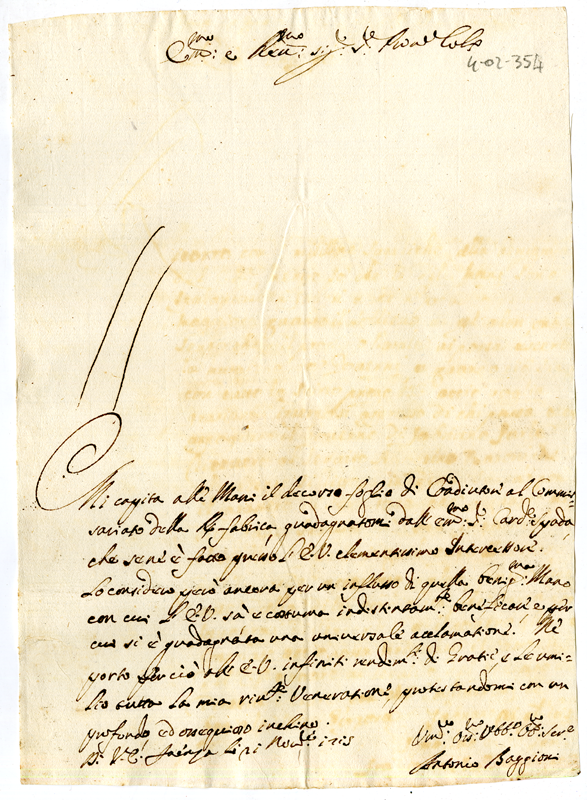 Em:mo e Reu:mo Sig:e S:e Pron:e Col:o
4-02-354
Mi capita alle Mani il decorso foglio di Coadiutore al Commis-
sariato della R. fabrica guadagnatomi dall' Em:mo S:r Card:e Spada,
che sen' è fatto presso l'E.V. clementissimo Intercessore.
Lo considero però ancora per un influsso di quella benig:ma Mano
con cui l'E.V. sà e costuma indistintam:te beneficare, e per
cui si è guadagnata una universale acclamatione. Ne
porto perciò all'E.V. infiniti rendim:ti di Gratie e le umi-
lio tutta la mia riu:te Veneratione, protestandomi con un
profondo, ed ossequioso inchino.
Di V.E. Faenza li 21 Nou:bre
Um:mo Deu:mo Obb:mo Ser:e
Antonio Baggioni